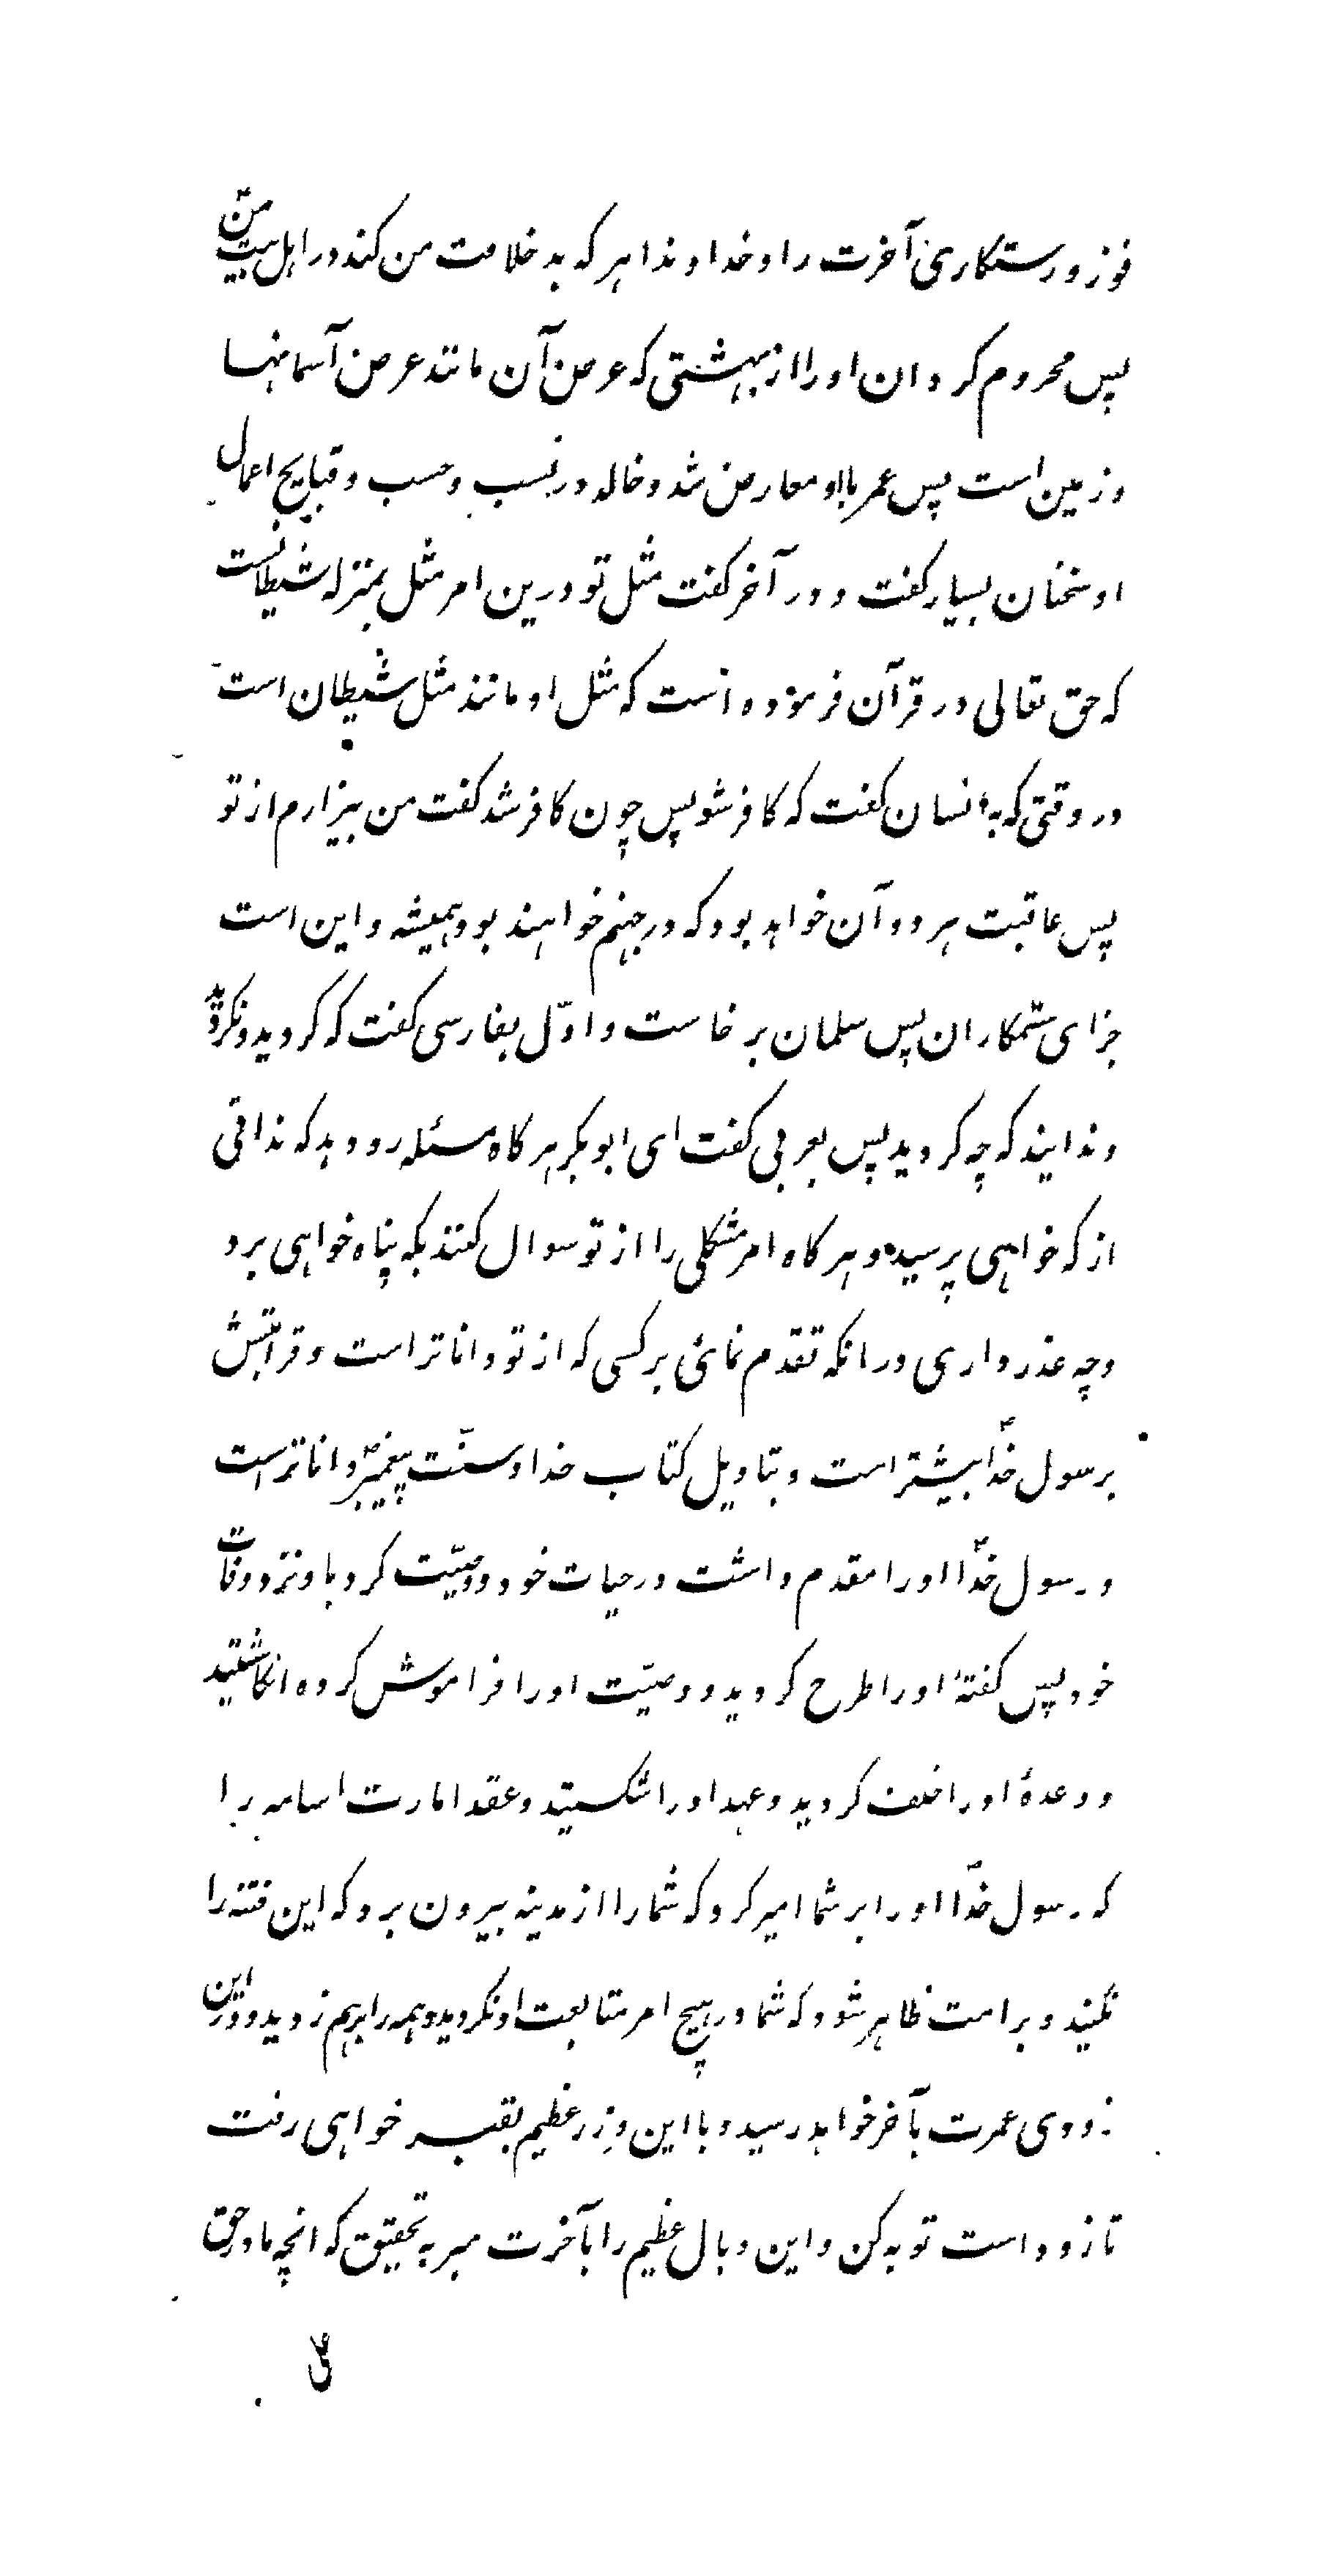 فوز و رستکاری آخرت را و خداوندا هر که بد خلافت من کند در اهل بیت من
پس محروم کردان او را از بهشتی که عرض آن مانند عرض آسمانها
و زمین است پس عمر با او معارض شد و خالد در نسب و حسب و قبایح اعمال
او سخنان بسیار کفت و در آخر کفت مثل تو درین امر مثل بمنزله شیطانست
که حق تعالی در قرآن فرموده است که مثل او مانند مثل شیطان است
در وقتی که به انسان کفت که کافر شو پس چون کافر شد کفت من بیزارم از تو
پس عاقبت هر دو آن خواهد بود که در جهنم خواهند بود همیشه و این است
جزای ستمکاران پس سلمان بر خاست و اوّل بفارسی کفت که کردید و نکردید
و ندانید که چه کردید پس بعربی کفت ای ابوبکر هر کاه مسئله رو دهد که ندانی
از که خواهی پرسید و هر کاه امر مشکلی را از تو سوال کنند بکه پناه خواهی برد
و چه عذر داری در انکه تقدم نمائی بر کسی که از تو داناتر است و قرابتش
برسول خدا بیشتر است و بتاویل کتاب خدا و سنّت پیغمبر داناتر است
و رسول خدا او را مقدم داشت در حیات خود و وصیّت کرد باو نزد وفات
خود پس کفتهٔ او را طرح کردید و وصیّت او را فراموش کرده انکاشتید
و وعدهٔ او را خلف کردید و عهد او را شکستید و عقد امارت اسامه را
که رسول خدا او را بر شما امیر کرد که شما را از مدینه بیرون برد که این فتنه را
نکنید و بر امت ظاهر شود که شما در هیچ امر متابعت او نکردید و همه را برهم زدید و درین
زودی عمرت بآخر خواهد رسید و با این وزر عظیم بقبر خواهی رفت
تا زود است توبه کن و این وبال عظیم را بآخرت مبر به تحقیق که انچه ما در حق
علی